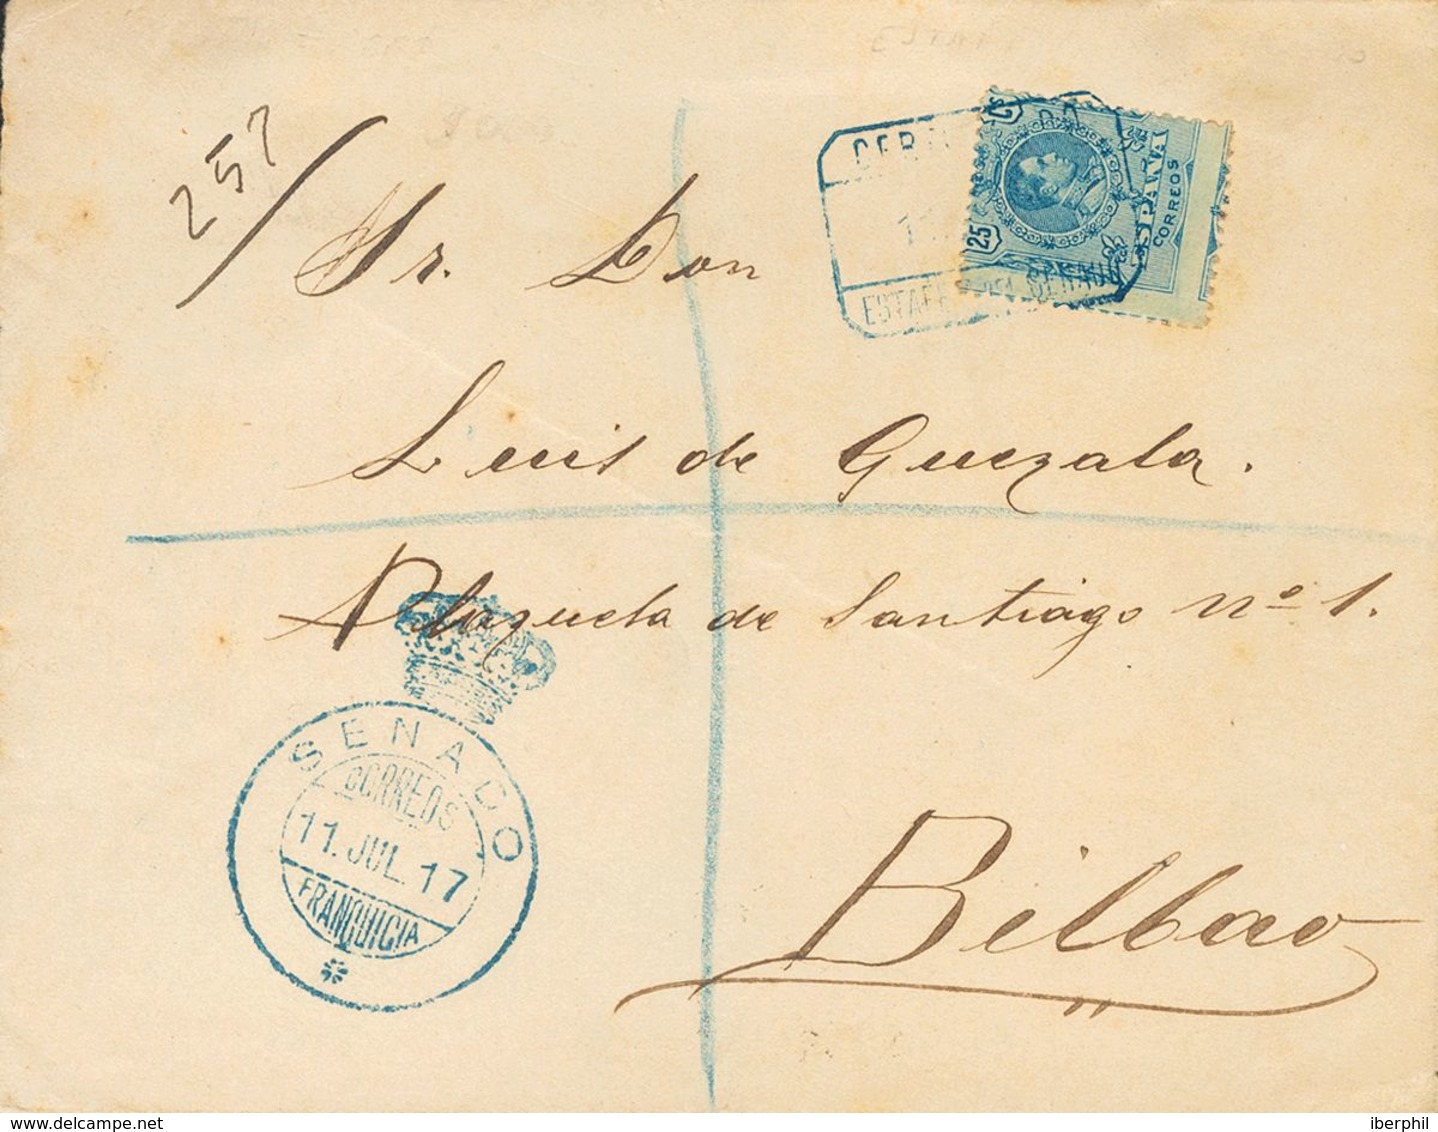 257
Sr. Don
25 C
ESPAÑA
CORREOS
ESTAFETA DEL SENADO
Luis de Guezala.
Plazuela de Santiago nº 1.
SENADO
CORREOS
11. JUL. 17
FRANQUICIA
Bilbao
www.delcampe.net
iberphil